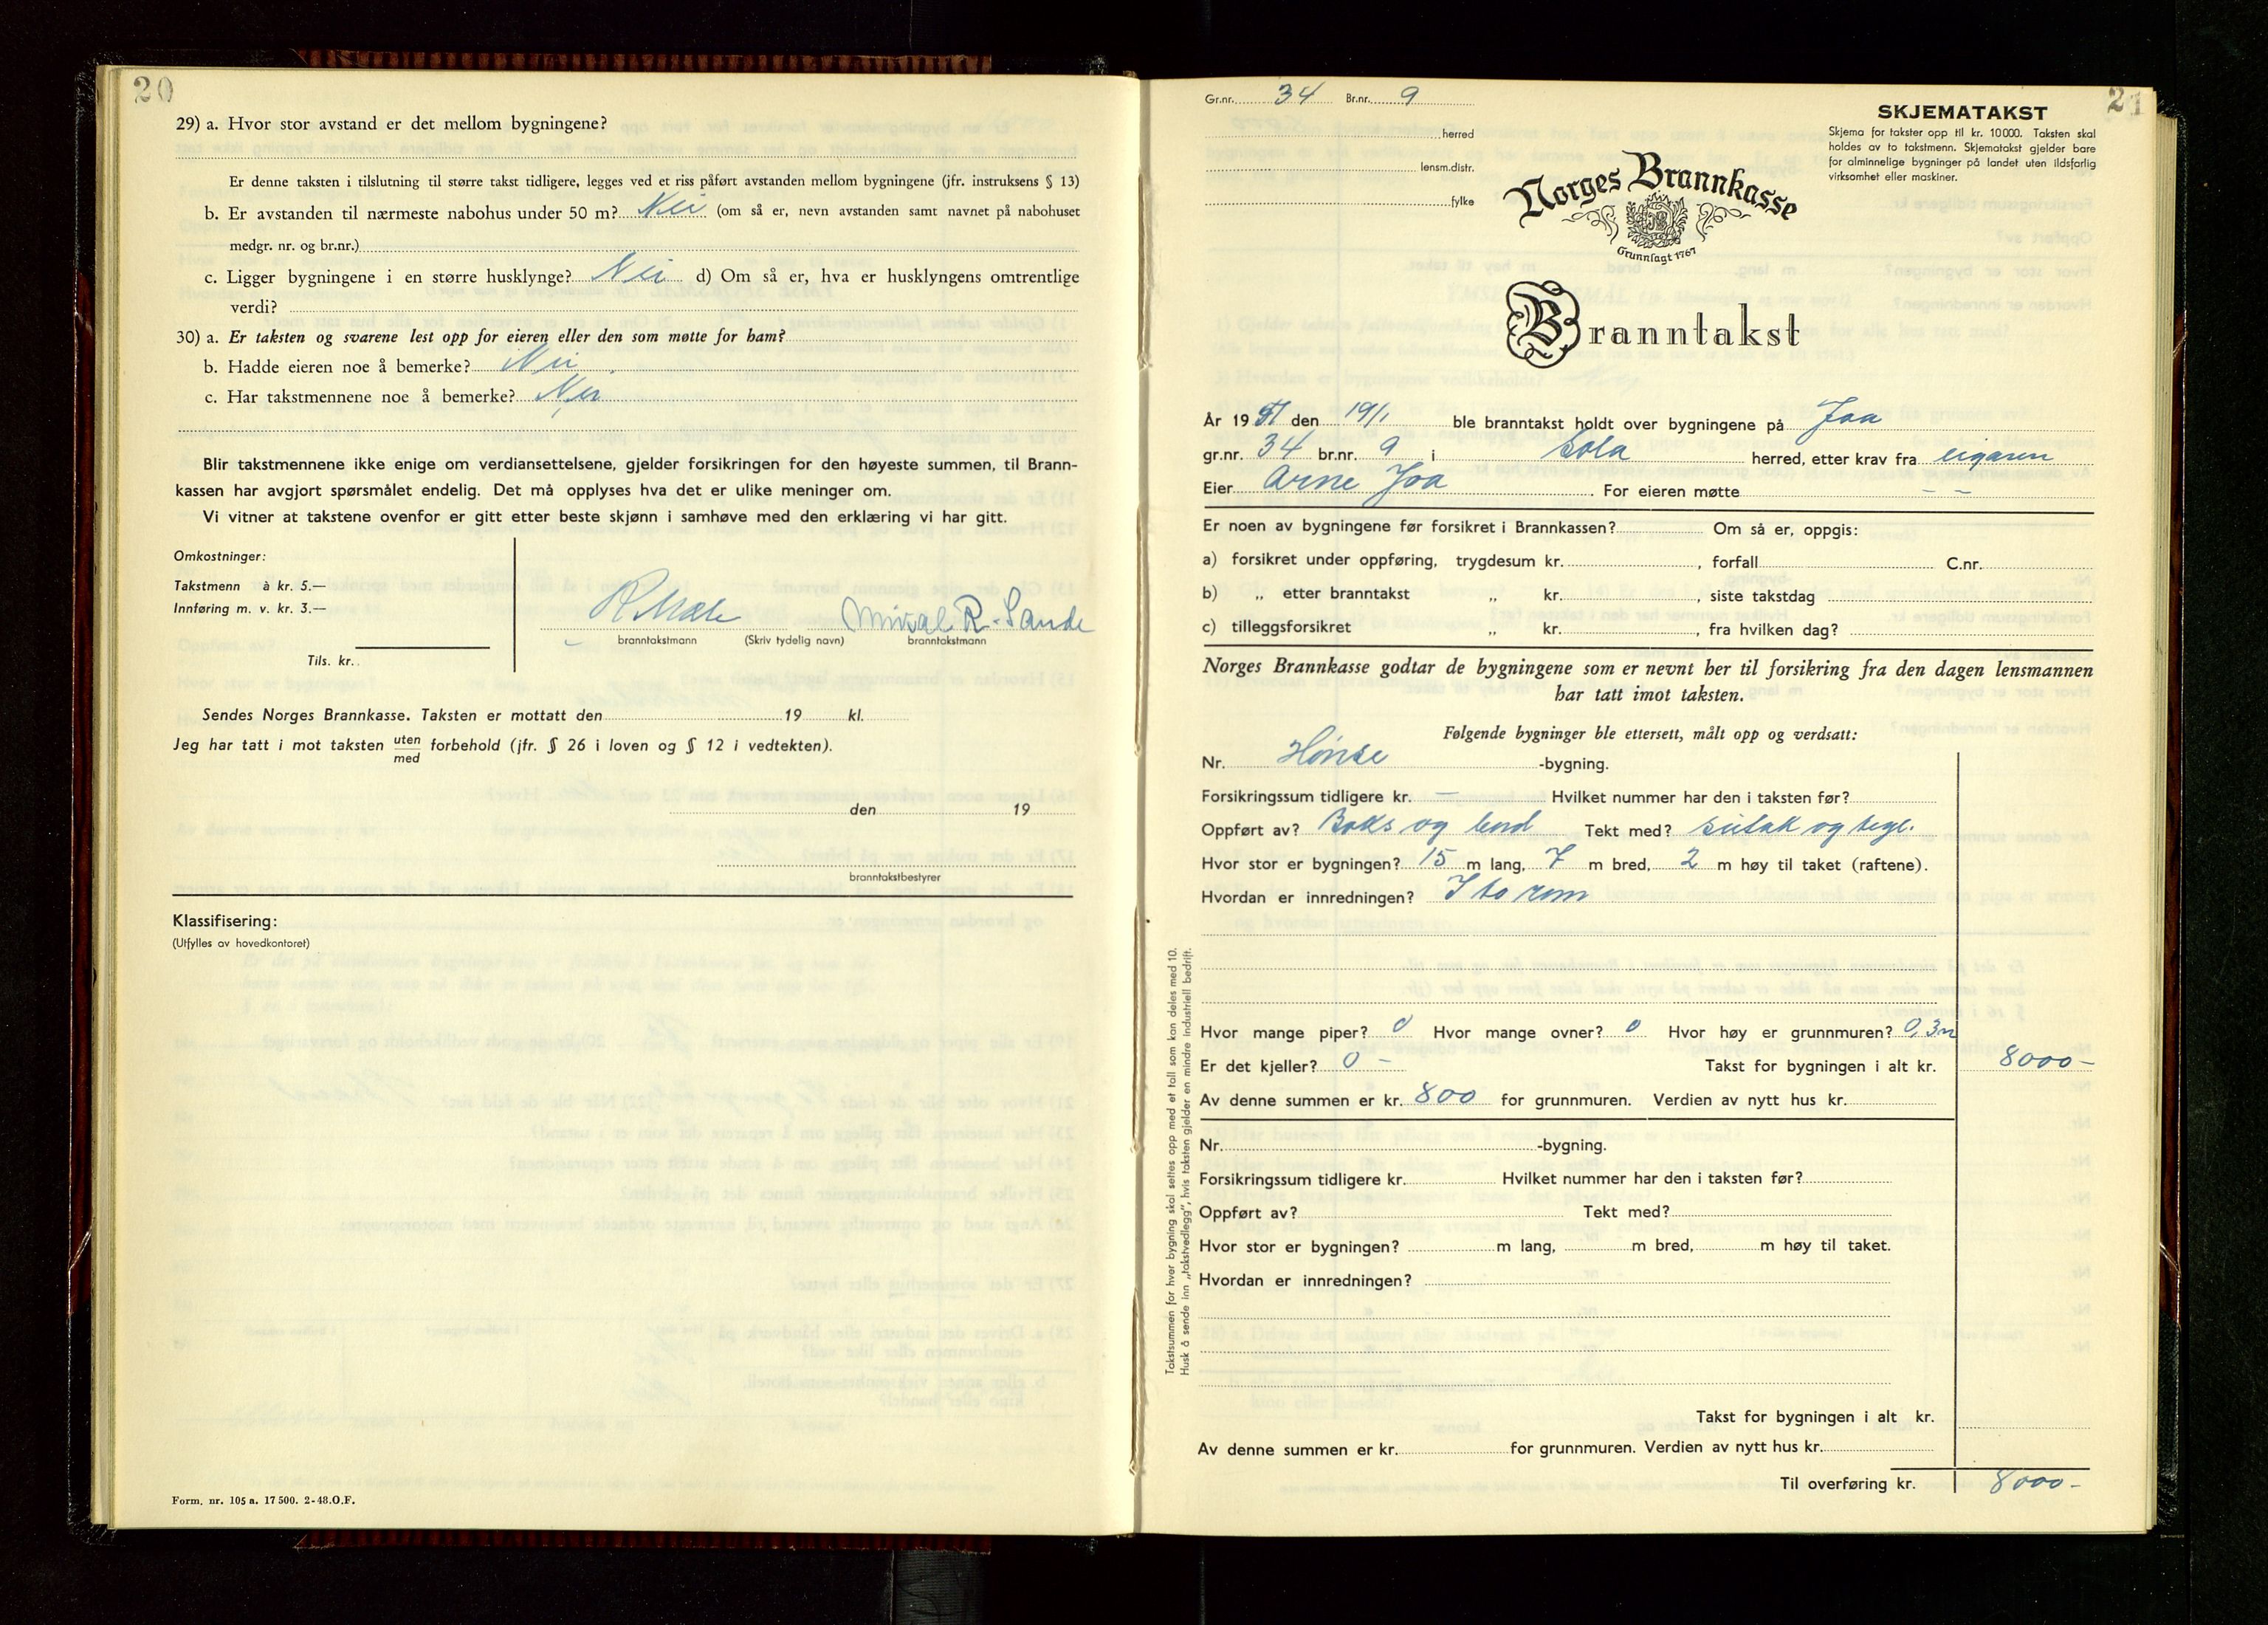 20
29) a. Hvor stor avstand er det mellom bygningene?
Er denne taksten i tilslutning til større takst tidligere, legges ved et riss påført avstanden mellom bygningene (jfr. instruksens § 13)
b. Er avstanden til nærmeste nabohus under 50 m? Nei (om så er, nevn avstanden samt navnet på nabohuset
medgr. nr. og br.nr.)
c. Ligger bygningene i en større husklynge? Nei d) Om så er, hva er husklyngens omtrentlige
verdi?
30) a. Er taksten og svarene lest opp for eieren eller den som møtte for ham?
b. Hadde eieren noe å bemerke? Nei
c. Har takstmennene noe å bemerke? Nei
Blir takstmennene ikke enige om verdiansettelsene, gjelder forsikringen for den høyeste summen, til Brann-
kassen har avgjort spørsmålet endelig. Det må opplyses hva det er ulike meninger om.
Vi vitner at takstene ovenfor er gitt etter beste skjønn i samhøve med den erklæring vi har gitt.
Omkostninger:
Takstmenn à kr. 5.—
Innføring m. v. kr. 3.—
Tils. kr.
R. Sande
branntakstmann (Skriv tydelig navn) branntakstmann
Sendes Norges Brannkasse. Taksten er mottatt den 19 kl.
Jeg har tatt i mot taksten uten forbehold (jfr. § 26 i loven og § 12 i vedtekten).
med
den 19
branntakstbestyrer
Klassifisering:
(Utfylles av hovedkontoret)
Form. nr. 105 a. 17 500. 2-48.O.F.
21
Gr.nr. 34 Br.nr. 9
herred
lensm.distr.
fylke
SKJEMATAKST
Skjema for takster opp til kr. 10 000. Taksten skal
holdes av to takstmenn. Skjematakst gjelder bare
for alminnelige bygninger på landet uten ildsfarlig
virksomhet eller maskiner.
Norges Brannkasse
Grunnlagt 1767
Branntakst
År 1951 den 19/1 ble branntakst holdt over bygningene på Joa
gr.nr. 34 br.nr. 9 i Sola herred, etter krav fra eigaren
Eier Arne Joa For eieren møtte – –
Er noen av bygningene før forsikret i Brannkassen? Om så er, oppgis:
a) forsikret under oppføring, trygdesum kr. , forfall C.nr.
b) „ etter branntakst „ kr. , siste takstdag
c) tilleggsforsikret „ kr. , fra hvilken dag?
Norges Brannkasse godtar de bygningene som er nevnt her til forsikring fra den dagen lensmannen
har tatt imot taksten.
Følgende bygninger ble ettersett, målt opp og verdsatt:
Nr. Hønse -bygning.
Forsikringssum tidligere kr. — Hvilket nummer har den i taksten før?
Oppført av? Boks og bord Tekt med? sutak og tegl.
Hvor stor er bygningen? 15 m lang, 7 m bred, 2 m høy til taket (raftene).
Hvordan er innredningen? I to rom
Hvor mange piper? 0 Hvor mange ovner? 0 Hvor høy er grunnmuren? 0,3m
Er det kjeller? 0 – Takst for bygningen i alt kr. 8000–
Av denne summen er kr. 800 for grunnmuren. Verdien av nytt hus kr.
Nr. -bygning.
Forsikringssum tidligere kr. Hvilket nummer har den i taksten før?
Oppført av? Tekt med?
Hvor stor er bygningen? m lang, m bred, m høy til taket.
Hvordan er innredningen?
Takst for bygningen i alt kr.
Av denne summen er kr. for grunnmuren. Verdien av nytt hus kr.
Til overføring kr. 8000–
Takstsummen for hver bygning skal settes opp med et tall som kan deles med 10.
Husk å sende inn „takstvedlegg", hvis taksten gjelder en mindre industriell bedrift.